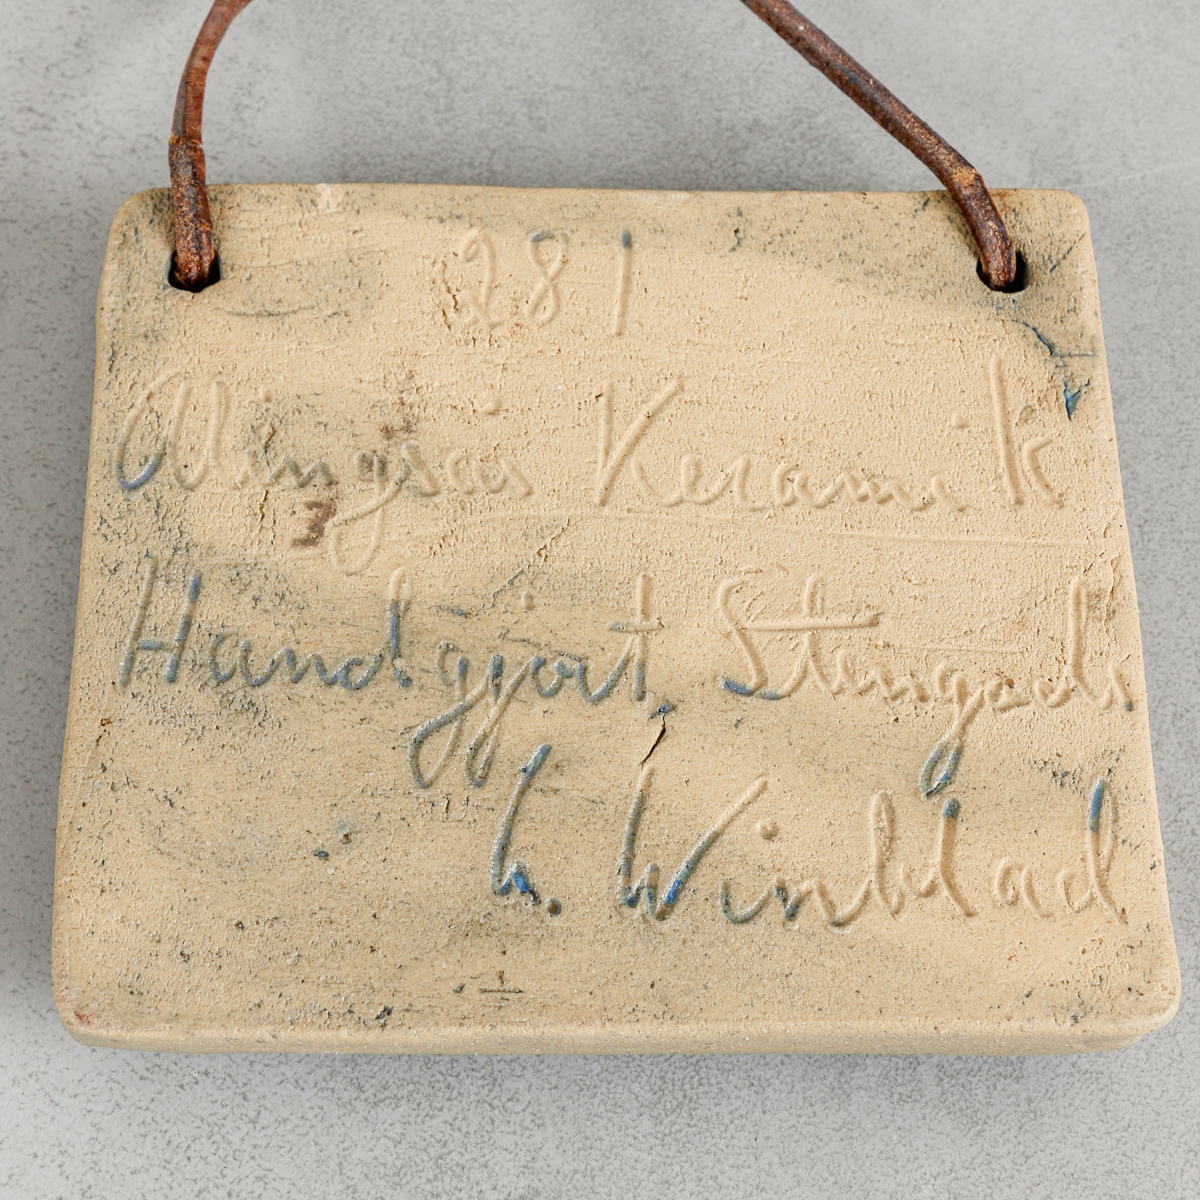 281
Keramik
Handgjort Stengods
G. Winblad